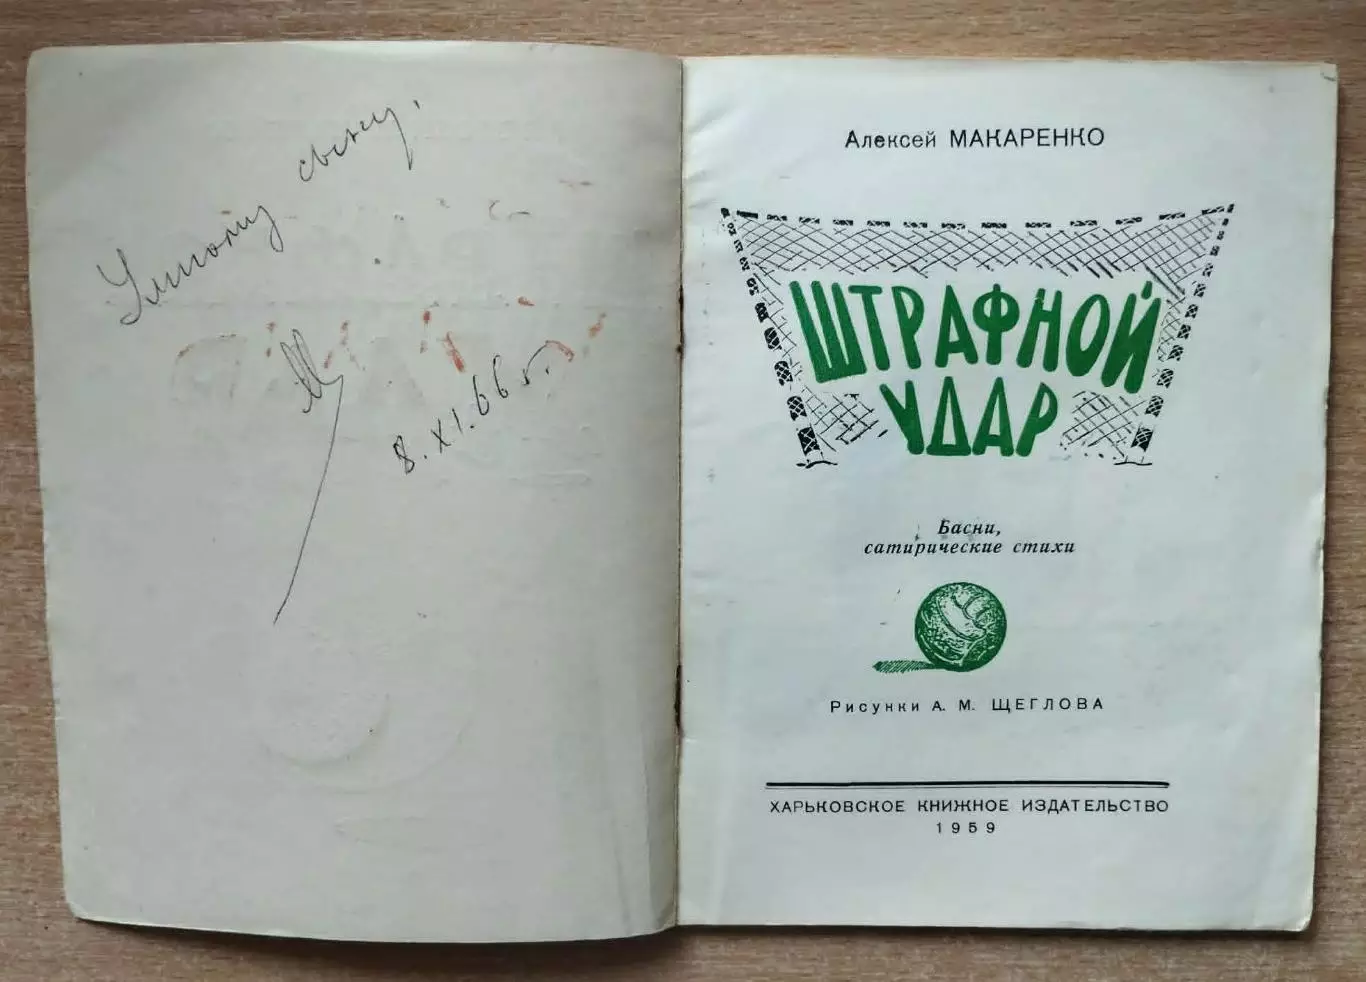 Умному сыну.
М
8. XI. 66 г.
Алексей МАКАРЕНКО
ШТРАФНОЙ
УДАР
Басни,
сатирические стихи
Рисунки А. М. ЩЕГЛОВА
ХАРЬКОВСКОЕ КНИЖНОЕ ИЗДАТЕЛЬСТВО
1959